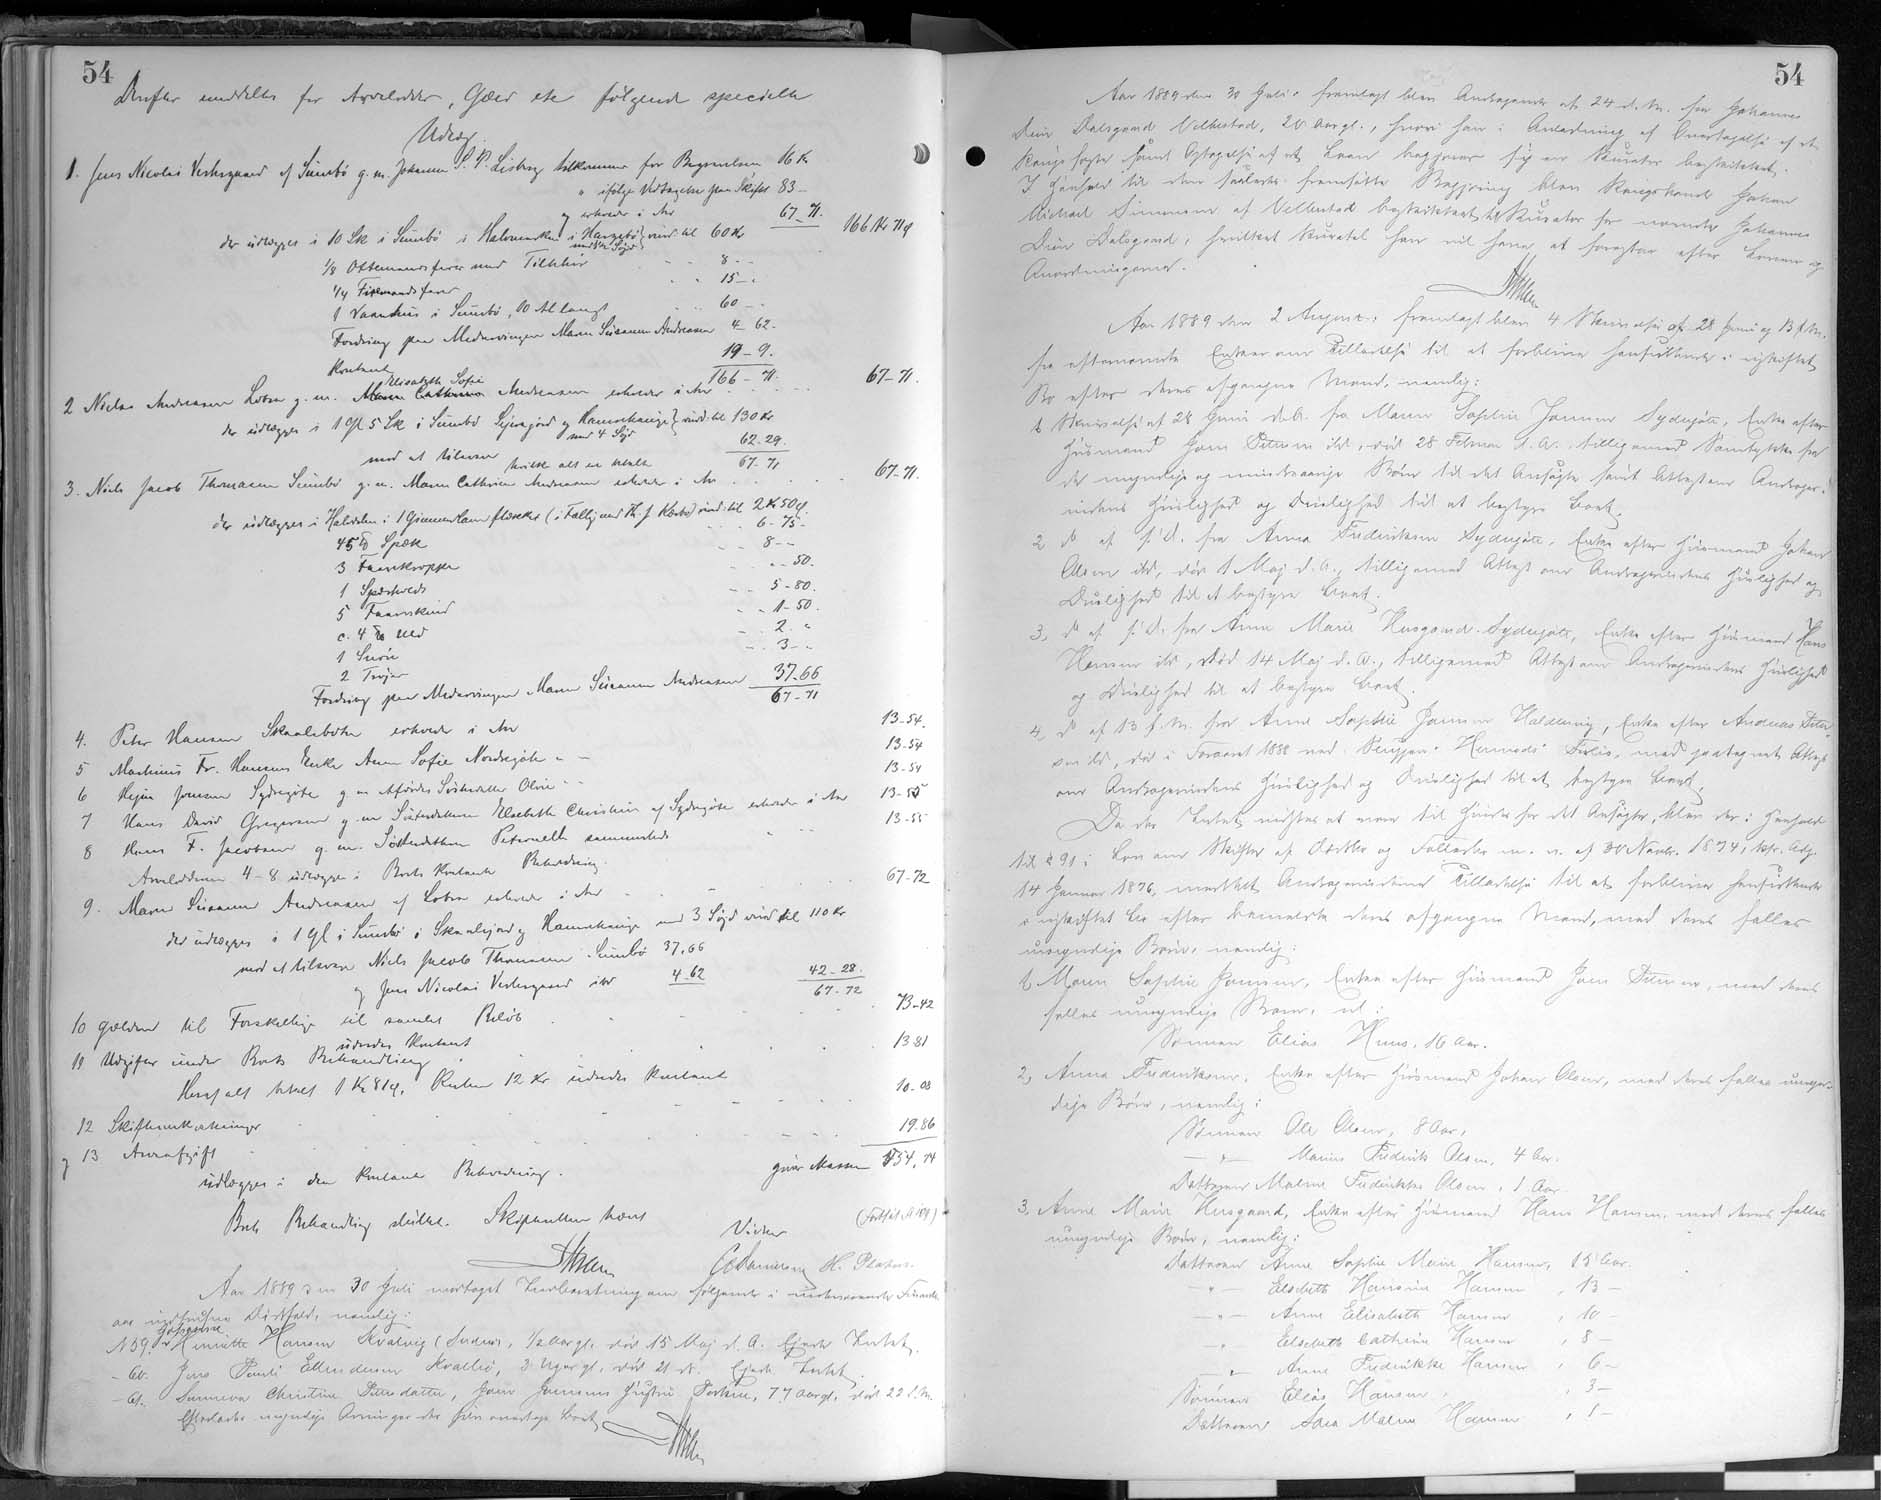 54
Derefter meddeltes for Arvelodder, Gæld etc følgende specielle
Udlæg.
1. Jens Nicolai Vestergaard af Sumbø g. m. Johanne S. P. Lisberg tilkommer for Begravelsen 16 Kr
" ifølge Vedtagelse paa Skiftet 83 –
og erholder i Arv 67–71. 166 Kr 71 ø
der udlægges i 10 Sk i Sumbø i Halvmarken i Hargebø vurd. til 60 Kr
med 2 Sýd
1/8 Ottemandsfarer med Tilbehør - - 8 - -
1/4 Firemandsfarer - - 15 - -
1 Vaanhus i Sumbø, 10 Al langt - - 60 - -
Fordring paa Medarvingen Maren Susanne Andreasen 4–62.
Kontant 19–9.
166–71.
2 Nielse Andreasen Lobra g. m. Elisabeth Sofie Andreasen erholder i Arv 67–71.
der udlægges i 1 Gl 5 Sk i Sumbø Sejragjord og Hamrehauge vurd. til 130 Kr
med 4 Sýd
med at tilsvare 62–29.
hvilke alt er betalt 67–71
3. Niels Jacob Thomasen Sumbø g. m. Maren Cathrine Andreasen erholder i Arv 67–71.
der udlægges i Halvdelen i 1 Grinnerlams flæsker (i Fællig med Th. J. Kærbo) vurd. til 2 Kr 50 ø
45 ℔ Spæk - - 6–75–
3 Faarekroppe - - 8 - -
1 - - 50.
5 Faareskind - - 5–80.
c. 4 ℔ Uld - - 1–50.
1 Snøre - - 2. "
2 Trøjer - - 3 - -
Fordring paa Medarvingen Maren Susanne Andreasen 37–66
67–71
4. Peter Hansen Skaalebotn erholder i Arv 13–54.
5 Martinus Fr. Hansens Enke Anna Sofie Nordregøte " – 13–54
6 Hejne Joensen Sydregøte g m Afdødes Søsterdatter Olevine " – 13–54
7 Hans David Gregersen g. m Søsterdatteren Elsebeth Christine af Sydregøte erholder i Arv 13–55
8 Hans F. Jacobsen g. m. Søsterdatteren Petronelle sammesteds 13–55
Arvelodderne 4–8 udlægges i Boets kontante Beholdning.
9. Maren Susanne Andreasen af Lobra erholder i Arv 67–72
der udlægges i 1 Gl i Sumbø i Skaalegjord og Hamrehauge med 3 Sýd vurd til 110 Kr
med at tilsvare Niels Jacob Thomasen Sumbø 37,66
og Jens Nicolai Vestergaard ibd 4–62 42–28.
67–72
10 Gælden til Forskellige til samlet Beløb 73–42
udredes kontant
11 Udgifter under Boets Behandling 13 81
Heraf alt betalt 1 Kr 81 ø. Resten 12 Kr udredes kontant
12 Skifteomkostninger 10–08
og 13 Arveafgift 19.86
udlægges i den kontante Beholdning. giver Massen 554,74
Boets Behandling sluttet. Skifteretten hævet
Vidner (Fortsat )
Danielsen H. Petersen
Aar 1889 den 30 Juli modtaget Indberetning om følgende i nærværende Finants-
aar indtrufne Dødsfald, nemlig:
№ 59. Josephine Henriette Hansen Kvalvig (Suderø), 1/2 Aar gl., død 15 Maj d. A. Ejede Intet.
– 60. Jens Pauli Ellendersen Kvalbø, 3 Uger gl., død 21 d. Ejede Intet.
– 61. Sunneva Christine Pætersdatter, Joen Joensens Hustru Porkere, 77 Aar gl., død 22 d. M.
Efterlader myndige Arvinger der selv overtage Boet.
54
Aar 1889 den 30 Juli: fremlagt blev Andragende af 24 d. M. fra Johannes
Dein Dalsgaard Velbestad, 20 Aar gl., hvori han i Anledning af Overtagelse af et
Kongsfæste samt Optagelse af et Laan begjærer sig en Kurator beskikket.
I Henhold til den saaledes fremsatte Begjæring blev Kongsbonde Johan
Michael Simonsen af Velbestad beskikket til Kurator for nævnte Johannes
Dein Dalsgaard, hvilket Kuratel han vil have at forestaa efter Loven og
Anordningerne.
Aar 1889 den 2 August: fremlagt blev 4 Skrivelser af 28 Juni og 13 f. M.
fra efternævnte Enker om Tilladelse til at forblive hensiddende i uskiftet
Bo efter deres afgangne Mænd, nemlig:
1 Skrivelse af 28 Juni d. A. fra Maren Sophie Joensen Sydregøte, Enke efter
Husmand Joen ibd., død 28 Februar d. A. tilligemed Samtykke fra
de myndige og mindreaarige Børn til det Ansøgte samt Attest om Andrager-
indens Huslighed og Duelighed til at bestyre Boet.
2 do af s. D. fra Anna Fredriksen Sydregøte, Enke efter Husmand Johan
Olsen ibd., død 1 Maj d. A., tilligemed Attest om Andragerindens Huslighed og
Duelighed til at bestyre Boet.
3. do af s. D. fra Anne Marie Husgaard Sydregøte, Enke efter Husmand Hans
Hansen ibd., død 14 Maj d. A., tilligemed Attest om Andragerindens Huslighed
og Duelighed til at bestyre Boet.
4. do af 13 f. M. fra Anne Sophie Joensen Haldarsvig, Enke efter Andreas
ibd., død i Foraaret 1888 med Sluppen Forlis, med paategnet Attest
om Andragerindens Huslighed og Duelighed til at bestyre Boet.
Da der Intet vidstes at være til Hinder for det Ansøgte, blev der i Henhold
til § 91 i Lov om Skifter af Dødsbo og Fællesbo m. v. af 30 Novbr. 1874, kfr. Adg.
14 Januar 1876, meddelt Andragerinderne Tilladelse til at forblive hensiddende
i uskiftet Bo efter bemeldte deres afgangne Mænd, med deres fælles
umyndige Børn, nemlig:
1, Maren Sophie Joensen, Enke efter Husmand Joen , med deres
fælles umyndige Barn, :
Sønnen Elias Hans, 16 Aar.
2, Anna Fredriksen, Enke efter Husmand Johan Olsen, med deres fælles umyn-
dige Børn, nemlig:
Sønnen Ole Olsen, 8 Aar,
– " – Marius Fredrik Olsen, 4 Aar.
Datteren Malene Fredrikke Olsen, 1 Aar.
3, Anne Marie Husgaard, Enke efter Husmand Hans Hansen, med deres fælles
umyndige Børn, nemlig:
Datteren Anne Sophie Marie Hansen, 15 Aar.
– " – Elsebeth Hansine Hansen , 13 –
– " – Anne Elisabeth Hansen , 10 –
– " – Elsebeth Cathrine Hansen , 8 –
– " – Anne Fredrikke Hansen , 6 –
Sønnen Elias Hansen , 3 –
Datteren Sara Malene Hansen , 1 –